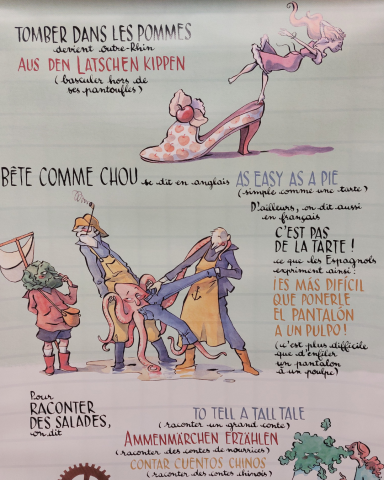 TOMBER DANS LES POMMES
devient outre-Rhin
AUS DEN LATSCHEN KIPPEN
(basculer hors de
ses pantoufles)
BÊTE COMME CHOU se dit en anglais AS EASY AS A PIE
(simple comme une tarte)
D'ailleurs, on dit aussi
en français
C'EST PAS
DE LA TARTE !
ce que les Espagnols
expriment ainsi :
¡ES MÁS DIFÍCIL
QUE PONERLE
EL PANTALÓN
A UN PULPO !
(c'est plus difficile
que d'enfiler
un pantalon
à un poulpe)
Pour
RACONTER
DES SALADES,
on dit
TO TELL A TALL TALE
(raconter un grand conte)
AMMENMÄRCHEN ERZÄHLEN
(raconter des contes de nourrices)
CONTAR CUENTOS CHINOS
(raconter des contes chinois)